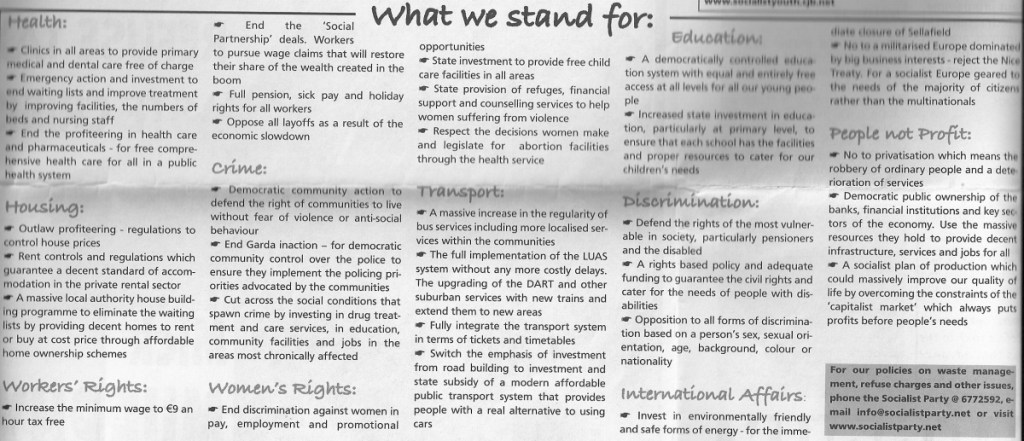 www.socialistyouth.cjb.net
What we stand for:
Health:
☛ Clinics in all areas to provide primary
medical and dental care free of charge
☛ Emergency action and investment to
end waiting lists and improve treatment
by improving facilities, the numbers of
beds and nursing staff
☛ End the profiteering in health care
and pharmaceuticals - for free compre-
hensive health care for all in a public
health system
Housing:
☛ Outlaw profiteering - regulations to
control house prices
☛ Rent controls and regulations which
guarantee a decent standard of accom-
modation in the private rental sector
☛ A massive local authority house build-
ing programme to eliminate the waiting
lists by providing decent homes to rent
or buy at cost price through affordable
home ownership schemes
Workers' Rights:
☛ Increase the minimum wage to €9 an
hour tax free
☛ End the 'Social
Partnership' deals. Workers
to pursue wage claims that will restore
their share of the wealth created in the
boom
☛ Full pension, sick pay and holiday
rights for all workers
☛ Oppose all layoffs as a result of the
economic slowdown
Crime:
☛ Democratic community action to
defend the right of communities to live
without fear of violence or anti-social
behaviour
☛ End Garda inaction – for democratic
community control over the police to
ensure they implement the policing pri-
orities advocated by the communities
☛ Cut across the social conditions that
spawn crime by investing in drug treat-
ment and care services, in education,
community facilities and jobs in the
areas most chronically affected
Women's Rights:
☛ End discrimination against women in
pay, employment and promotional
opportunities
☛ State investment to provide free child
care facilities in all areas
☛ State provision of refuges, financial
support and counselling services to help
women suffering from violence
☛ Respect the decisions women make
and legislate for abortion facilities
through the health service
Transport:
☛ A massive increase in the regularity of
bus services including more localised ser-
vices within the communities
☛ The full implementation of the LUAS
system without any more costly delays.
The upgrading of the DART and other
suburban services with new trains and
extend them to new areas
☛ Fully integrate the transport system
in terms of tickets and timetables
☛ Switch the emphasis of investment
from road building to investment and
state subsidy of a modern affordable
public transport system that provides
people with a real alternative to using
cars
Education:
☛ A democratically controlled educa-
tion system with equal and entirely free
access at all levels for all our young peo-
ple
☛ Increased state investment in educa-
tion, particularly at primary level, to
ensure that each school has the facilities
and proper resources to cater for our
children's needs
Discrimination:
☛ Defend the rights of the most vulner-
able in society, particularly pensioners
and the disabled
☛ A rights based policy and adequate
funding to guarantee the civil rights and
cater for the needs of people with dis-
abilities
☛ Opposition to all forms of discrimina-
tion based on a person's sex, sexual ori-
entation, age, background, colour or
nationality
International Affairs:
☛ Invest in environmentally friendly
and safe forms of energy - for the imme-
diate closure of Sellafield
☛ No to a militarised Europe dominated
by big business interests - reject the Nice
Treaty. For a socialist Europe geared to
the needs of the majority of citizens
rather than the multinationals
People not Profit:
☛ No to privatisation which means the
robbery of ordinary people and a dete-
rioration of services
☛ Democratic public ownership of the
banks, financial institutions and key sec-
tors of the economy. Use the massive
resources they hold to provide decent
infrastructure, services and jobs for all
☛ A socialist plan of production which
could massively improve our quality of
life by overcoming the constraints of the
'capitalist market' which always puts
profits before people's needs
For our policies on waste manage-
ment, refuse charges and other issues,
phone the Socialist Party @ 6772592, e-
mail info@socialistparty.net or visit
www.socialistparty.net